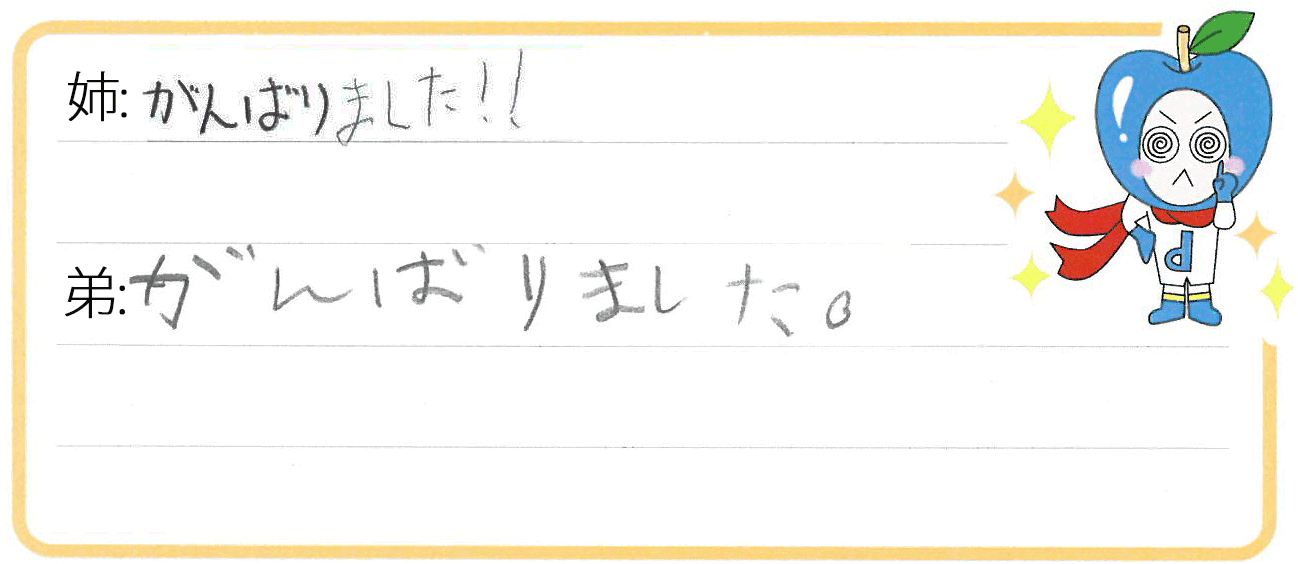 姉:がんばりました!!
弟:がんばりました。
d